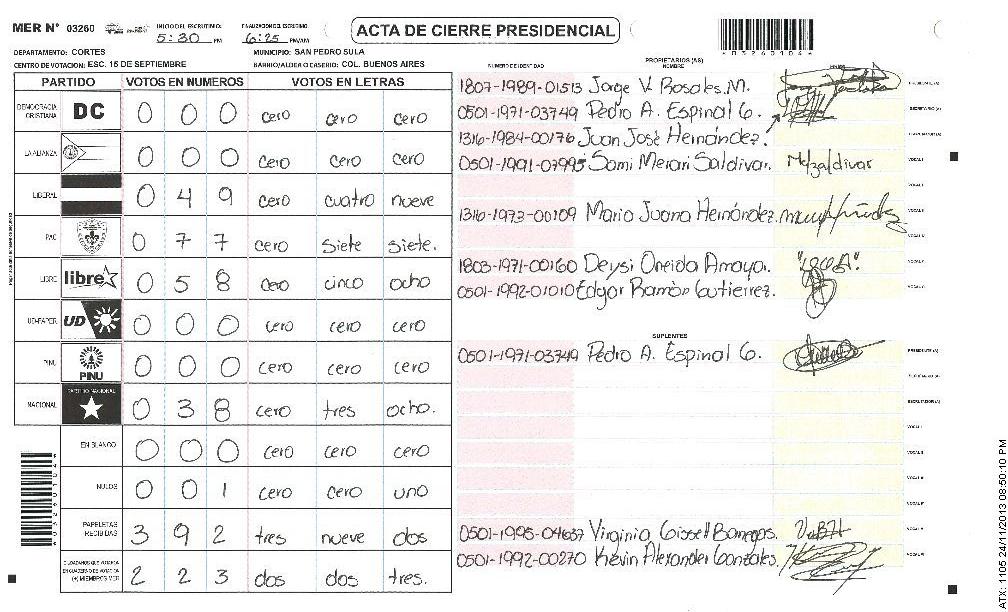 MER Nº 03260
INICIO DEL ESCRUTINIO 5:30 PM
FINALIZACION DEL ESCRUTINIO 6:25 PM/AM
ACTA DE CIERRE PRESIDENCIAL
DEPARTAMENTO: CORTES
MUNICIPIO: SAN PEDRO SULA
CENTRO DE VOTACION: ESC. 15 DE SEPTIEMBRE
BARRIO/ALDEA O CASERIO: COL. BUENOS AIRES
PARTIDO VOTOS EN NUMEROS VOTOS EN LETRAS
DEMOCRACIA CRISTIANA DC 0 0 0 cero cero cero
LA ALIANZA 0 0 0 cero cero cero
LIBERAL 0 4 9 cero cuatro nueve
PAC 0 7 7 cero siete siete.
LIBRE libre 0 5 8 cero cinco ocho
UD-FAPER UD 0 0 0 cero cero cero
PINU PINU 0 0 0 cero cero cero
NACIONAL PARTIDO NACIONAL 0 3 8 cero tres ocho.
EN BLANCO 0 0 0 cero cero cero
NULOS 0 0 1 cero cero uno
PAPELETAS RECIBIDAS 3 9 2 tres nueve dos
CIUDADANOS QUE VOTARON EN CUADERNO DE VOTACION (+) MIEMBROS MER 2 2 3 dos dos tres.
PROPIETARIOS (AS)
NUMERO DE IDENTIDAD NOMBRE FIRMA
1807-1989-01513 Jorge V. Rosales.M. PRESIDENTE (A)
0501-1971-03749 Pedro A. Espinal G. SECRETARIO (A)
1316-1984-00176 Juan José Hernández.
0501-1991-07995 Sami Merari Saldivar. VOCAL I
1316-1973-00109 Mario Juana Hernández.
1803-1971-00160 Deysi Oneida Amaya.
0501-1992-01010 Edgar Ramón Gutierrez.
SUPLENTES
0501-1971-03749 Pedro A. Espinal G. PRESIDENTE (A)
0501-1995-04637 Virginia Gissell
0501-1992-00270 Kevin Alexander Gonzales.
*03260104*
ATX: 1105 24/11/2013 08:50:10 PM